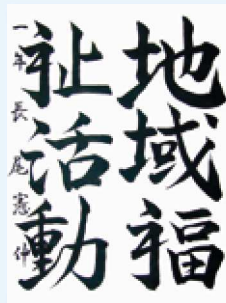 地域福
祉活動
一年 長尾憲伸